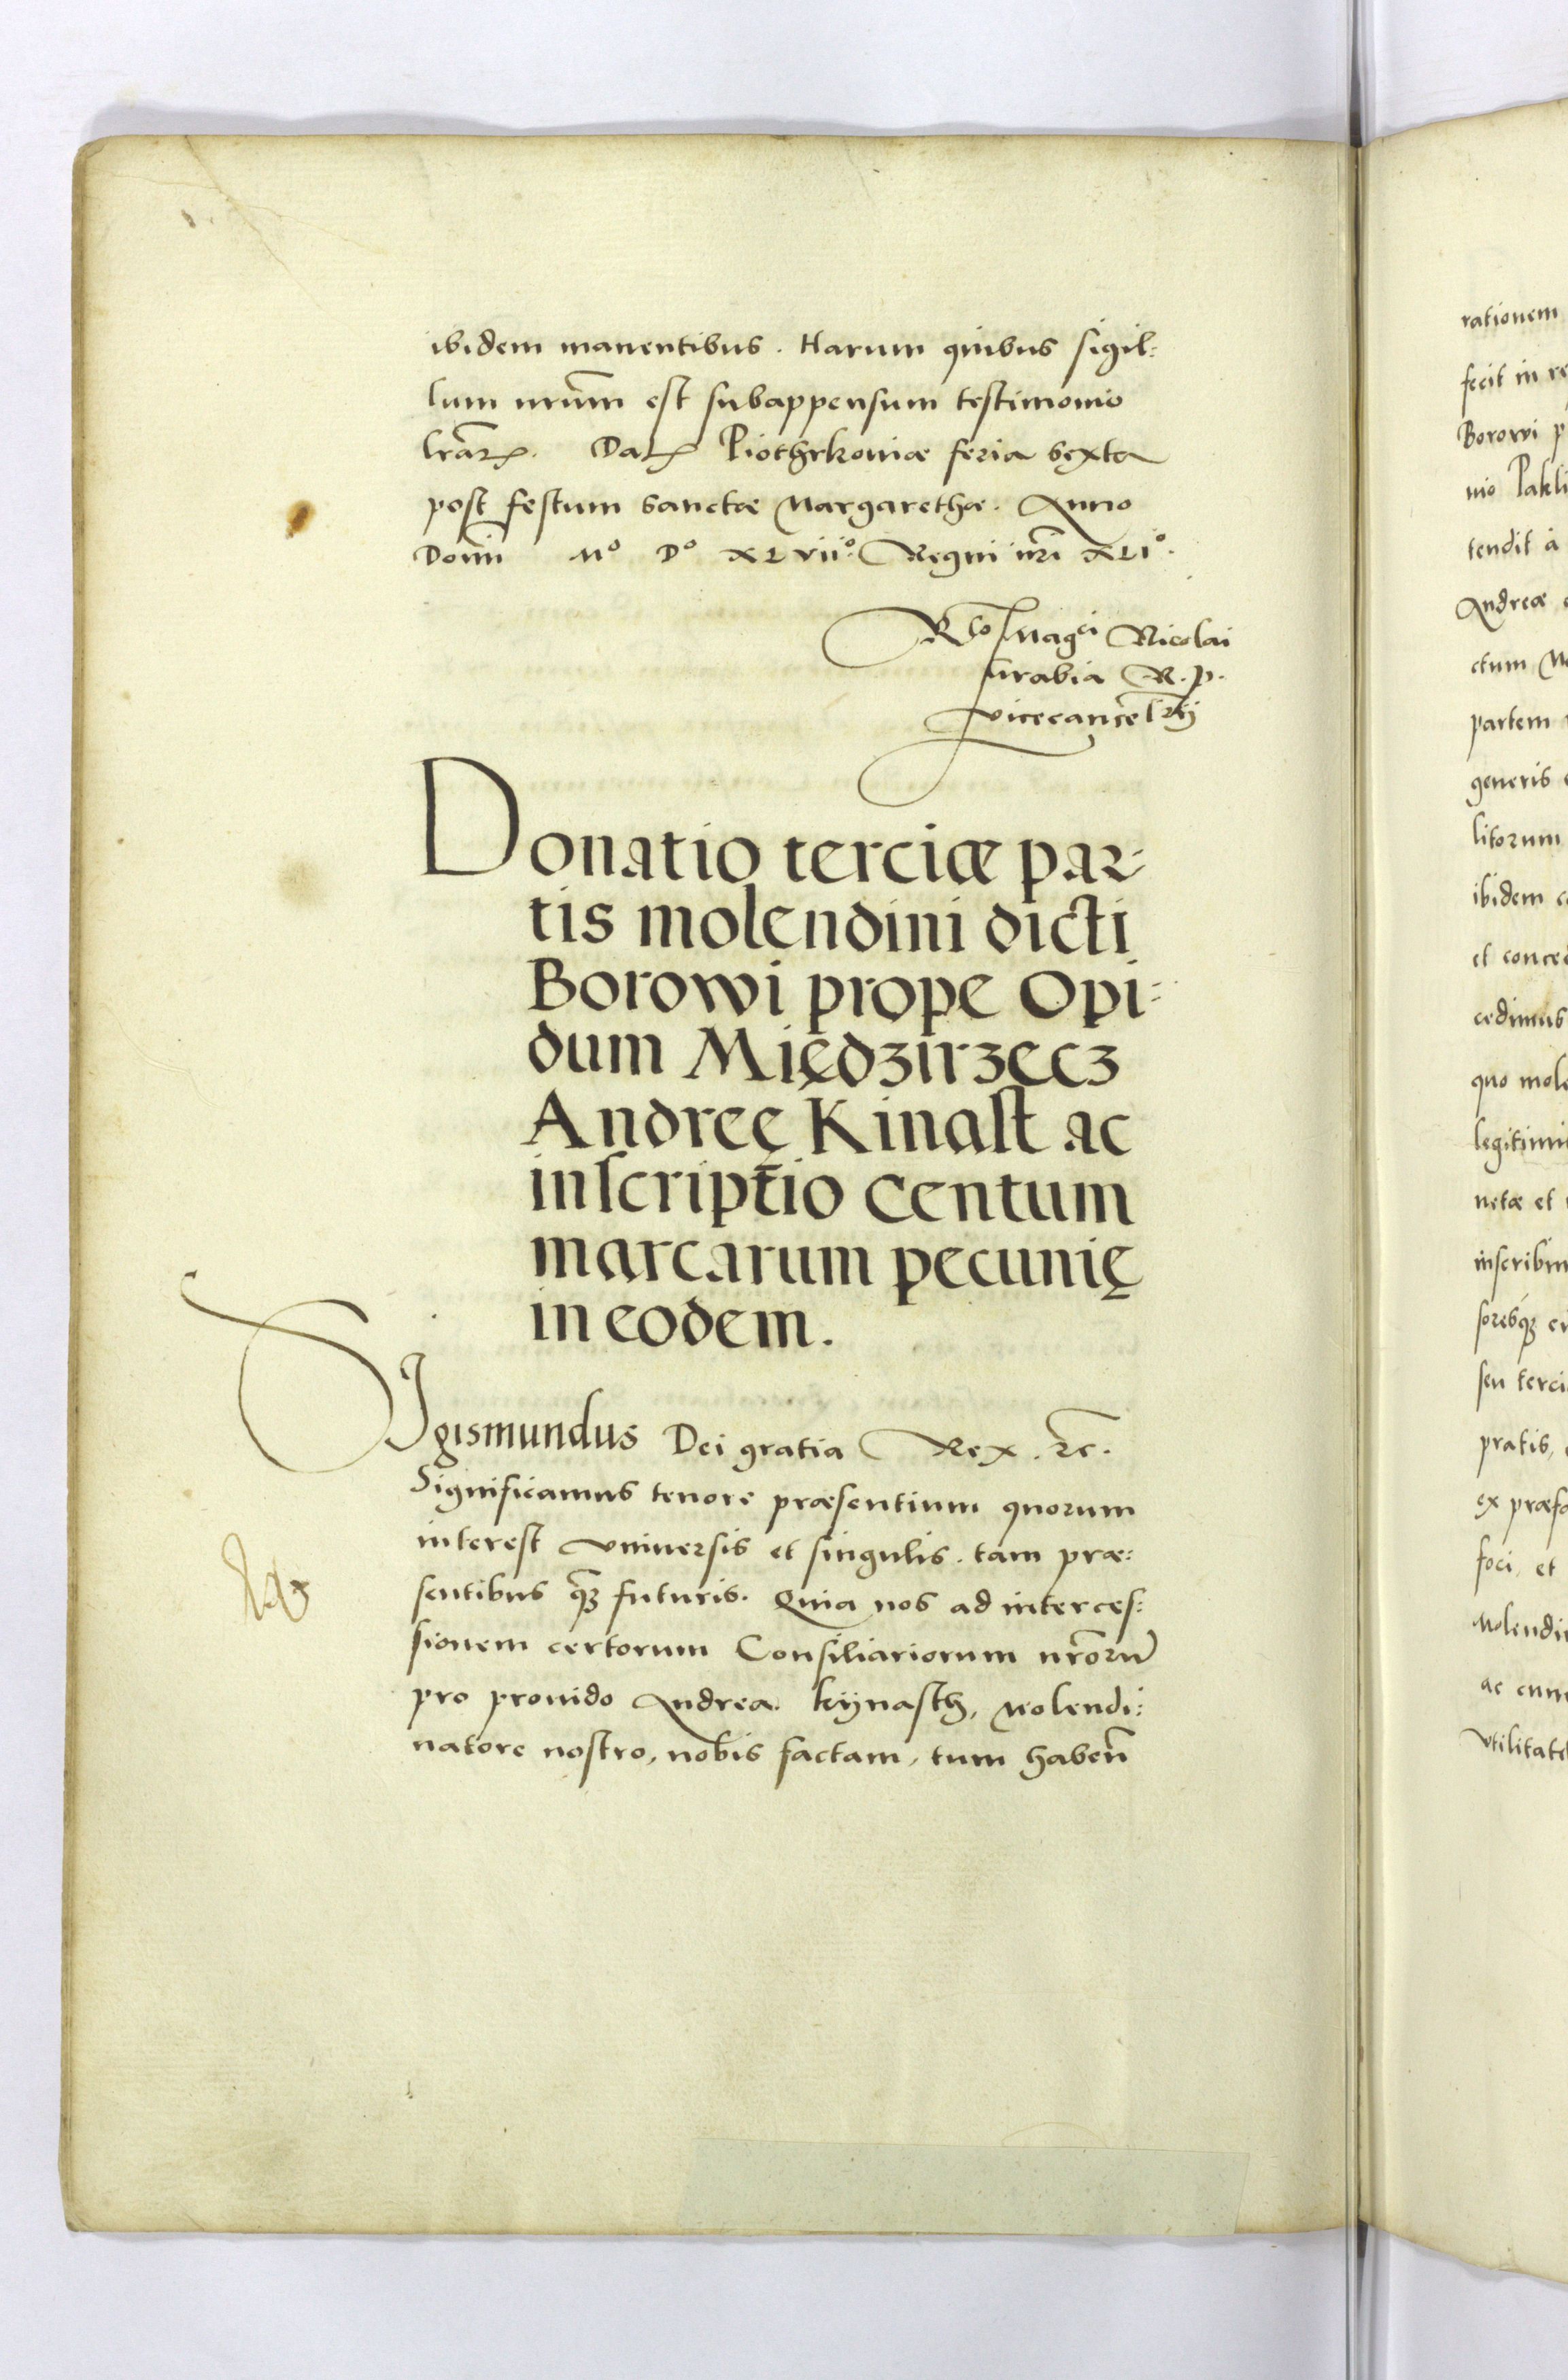 ibidem manentibus. Harum quibus sigil:
lum nrum̄ est subappensum testimonio
lrar̄ꝝ. Datꝝ Piothrkoviæ feria sexta
post festum sanctæ Margarethæ. Anno
Domī Mº Dº XLVIIº. Regni nrī XLIº.
Rᵗⁱᵒ Magᶜⁱ Nicolai
Grabia R. P.
vicecancel̄rij
Donatio terciæ par=
tis molendini dicti
Borowi prope Opi=
dum Międzirzecz
Andreę Kinast ac
inscript̄io centum
marcarum pecunię
in eodem.
Sigismundus Dei gratia Rex. ꝛc.
Significamus tenore præsentium quorum
interest vniuersis et singulis. tam præ:
sentibus qᷓꝫ futuris. Quia nos ad interces:
sionem certorum Consiliariorum nrōrū
pro prouido Andrea. kÿnasth, Molendi:
natore nostro, nobis factam, tum habeñ
rationem
fecit in re
Borowi p
nio Pakli
tendit a
Andreæ
ctum
partem
generis
litorum
ibidem
et conced
cedimus
quo mole
legitimi
netæ et
inscribim
soresqꝫ
seu terci
pratis,
ex præfa
foci, et
Molendi
ac cum
vtilitate